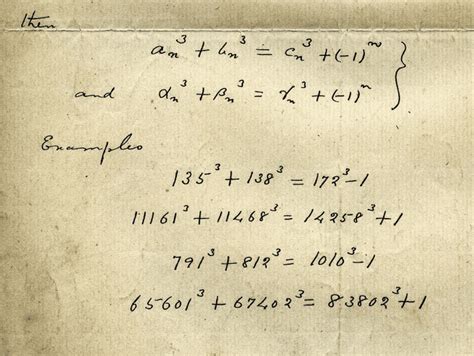 then
aₙ³ + bₙ³ = cₙ³ + (-1)ⁿ
and αₙ³ + βₙ³ = γₙ³ + (-1)ⁿ
Examples
135³ + 138³ = 172³ - 1
11161³ + 11468³ = 14258³ + 1
791³ + 812³ = 1010³ - 1
65601³ + 67402³ = 83802³ + 1